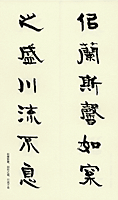 似蘭斯馨如松
之盛川流不息